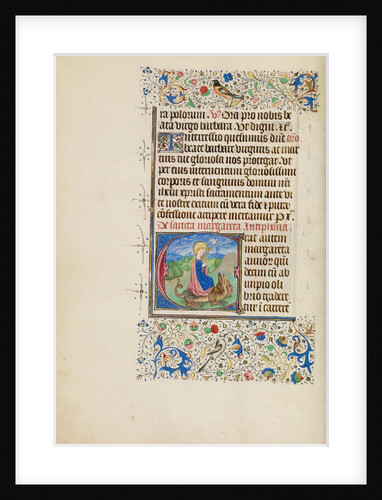 ra polorum. V. Ora pro nobis be
ata virgo barbara. Vt digni &c.
Intercessio quesumus dne oro.
beate barbare virginis ac mar
tiris tue gloriosa nos protegat. vt
per eius interuentum gloriosissimi
corporis et sanguinis domini nri
ihesu xpristi sacramentum ante vi
te nostre exitum cum vera fide & pura
confessione accipere mereamur P x.
De sancta margareta Antiphona.
Erat autem
margareta
cum ab
impio